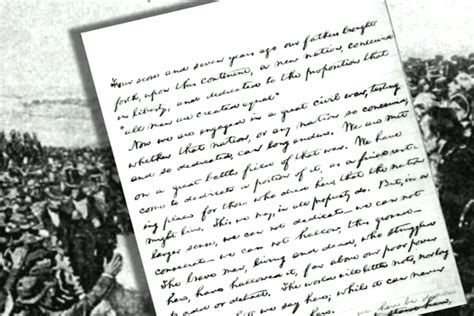 Four score and seven years ago our fathers brought
forth, upon this continent, a new nation, conceived
in liberty, and dedicated to the proposition that
"all men are created equal"
Now we are engaged in a great civil war, testing
whether that nation, or any nation so conceived,
and so dedicated, can long endure. We are met
on a great battle field of that war. We have
come to dedicate a portion of it, as a final rest-
ing place for those who died here, that the nation
might live. This we may, in all propriety do. But, in a
larger sense, we can not dedicate — we can not
consecrate — we can not hallow, this ground —
The brave men, living and dead, who struggled
here, have hallowed it, far above our poor power
to add or detract. The world will little note, nor long
we say here; while it can never
here.